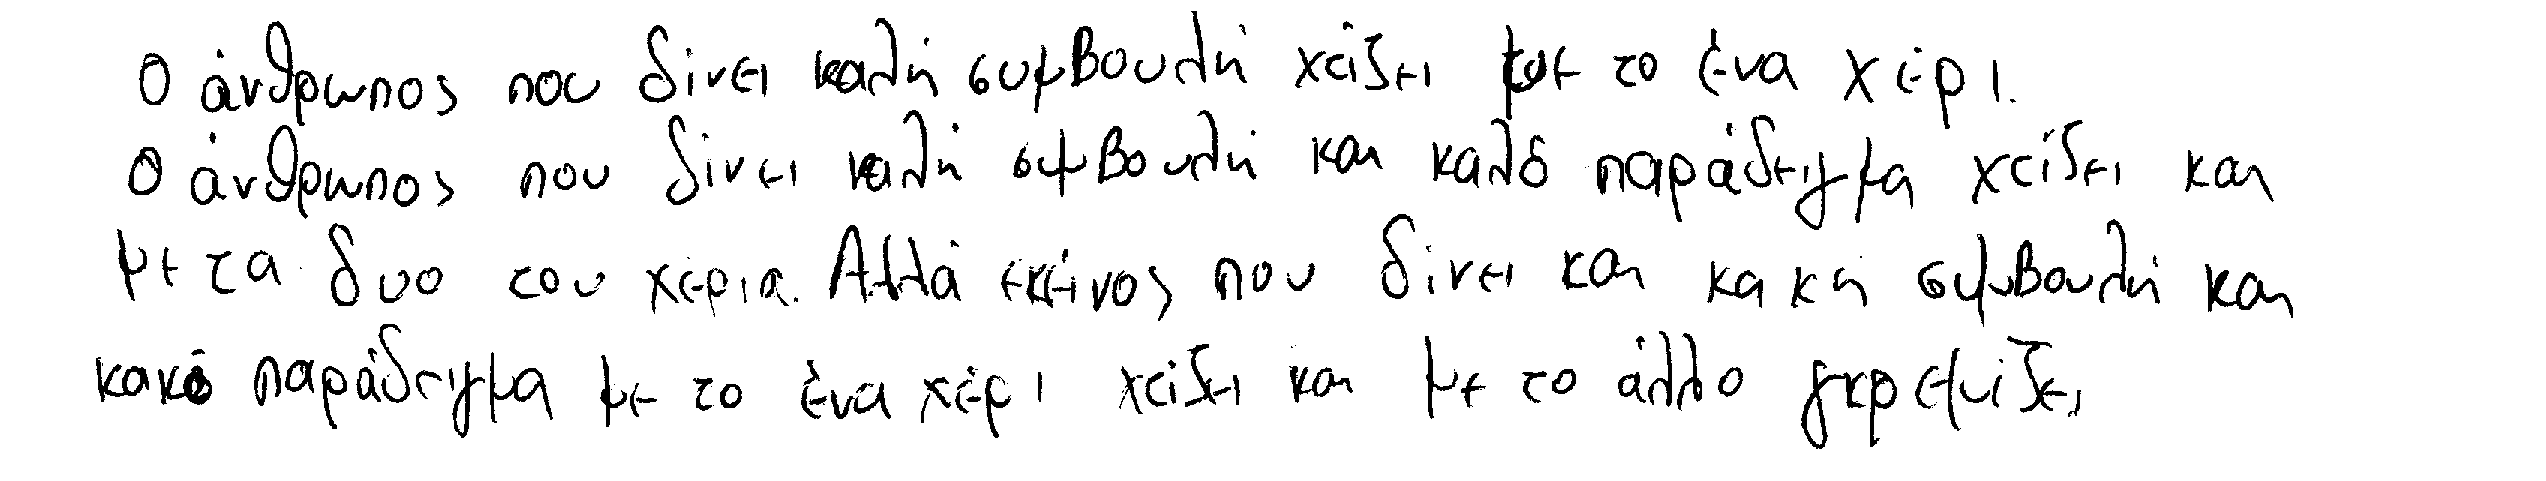 Ο άνθρωπος που δίνει καλή συμβουλή χτίζει με το ένα χέρι.
Ο άνθρωπος που δίνει καλή συμβουλή και καλό παράδειγμα χτίζει και
με τα δυο του χέρια. Αλλά εκείνος που δίνει και κακή συμβουλή και
κακό παράδειγμα με το ένα χέρι χτίζει και με το άλλο γκρεμίζει